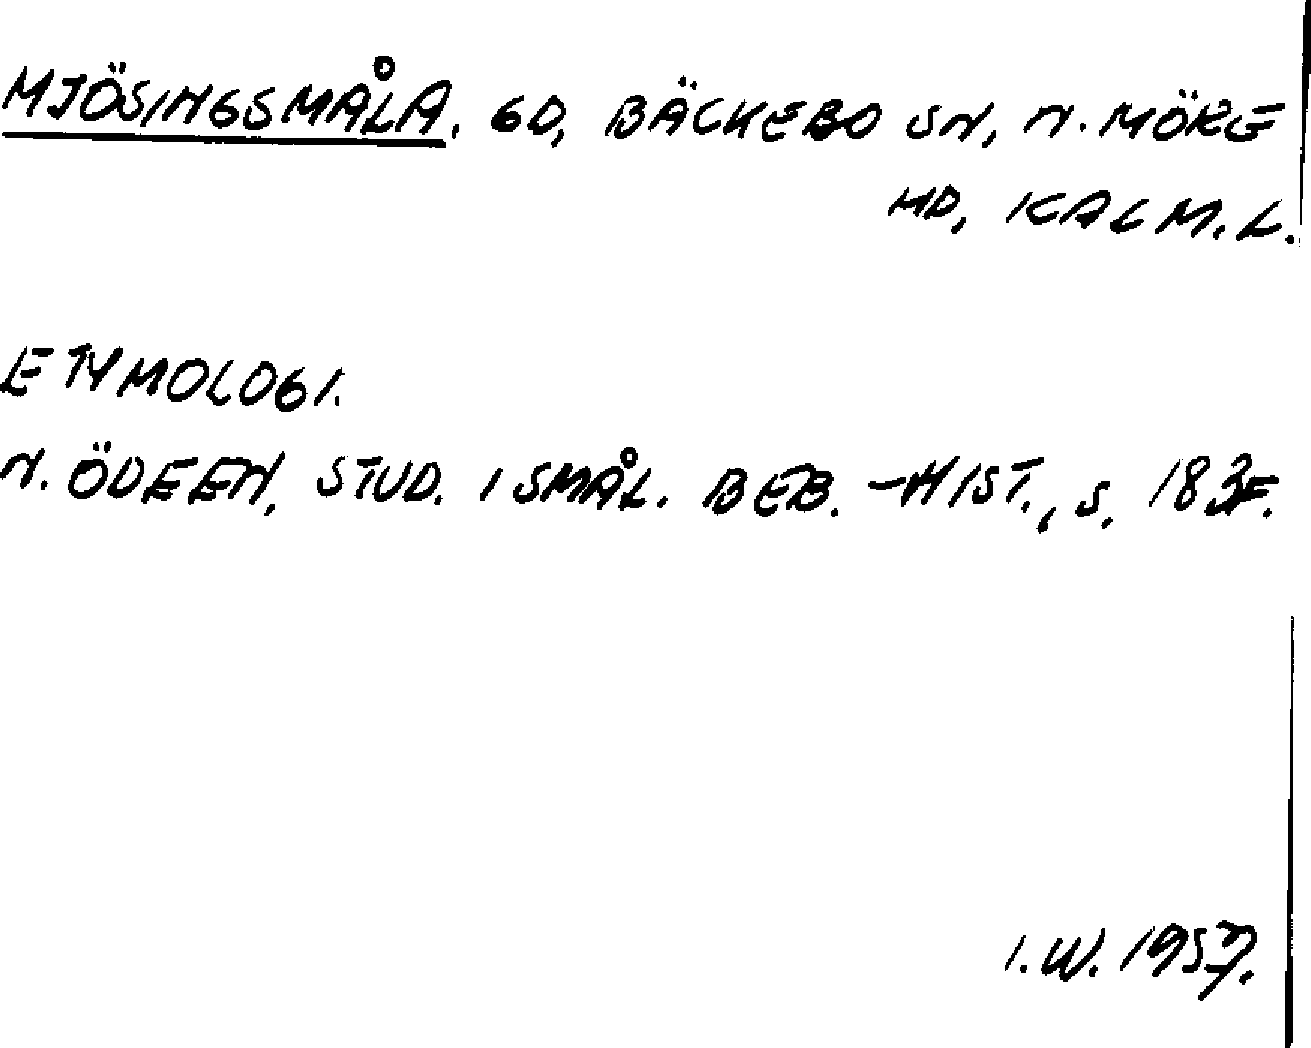 MJÖSINGSMÅLA. GD, BÄCKEBO SN, N. MÖRE
HD, KALM. L.
ETYMOLOGI.
N. ÖDEEN, STUD. I SMÅL. BEB. -HIST., S. 183F.
I. W. 1957.